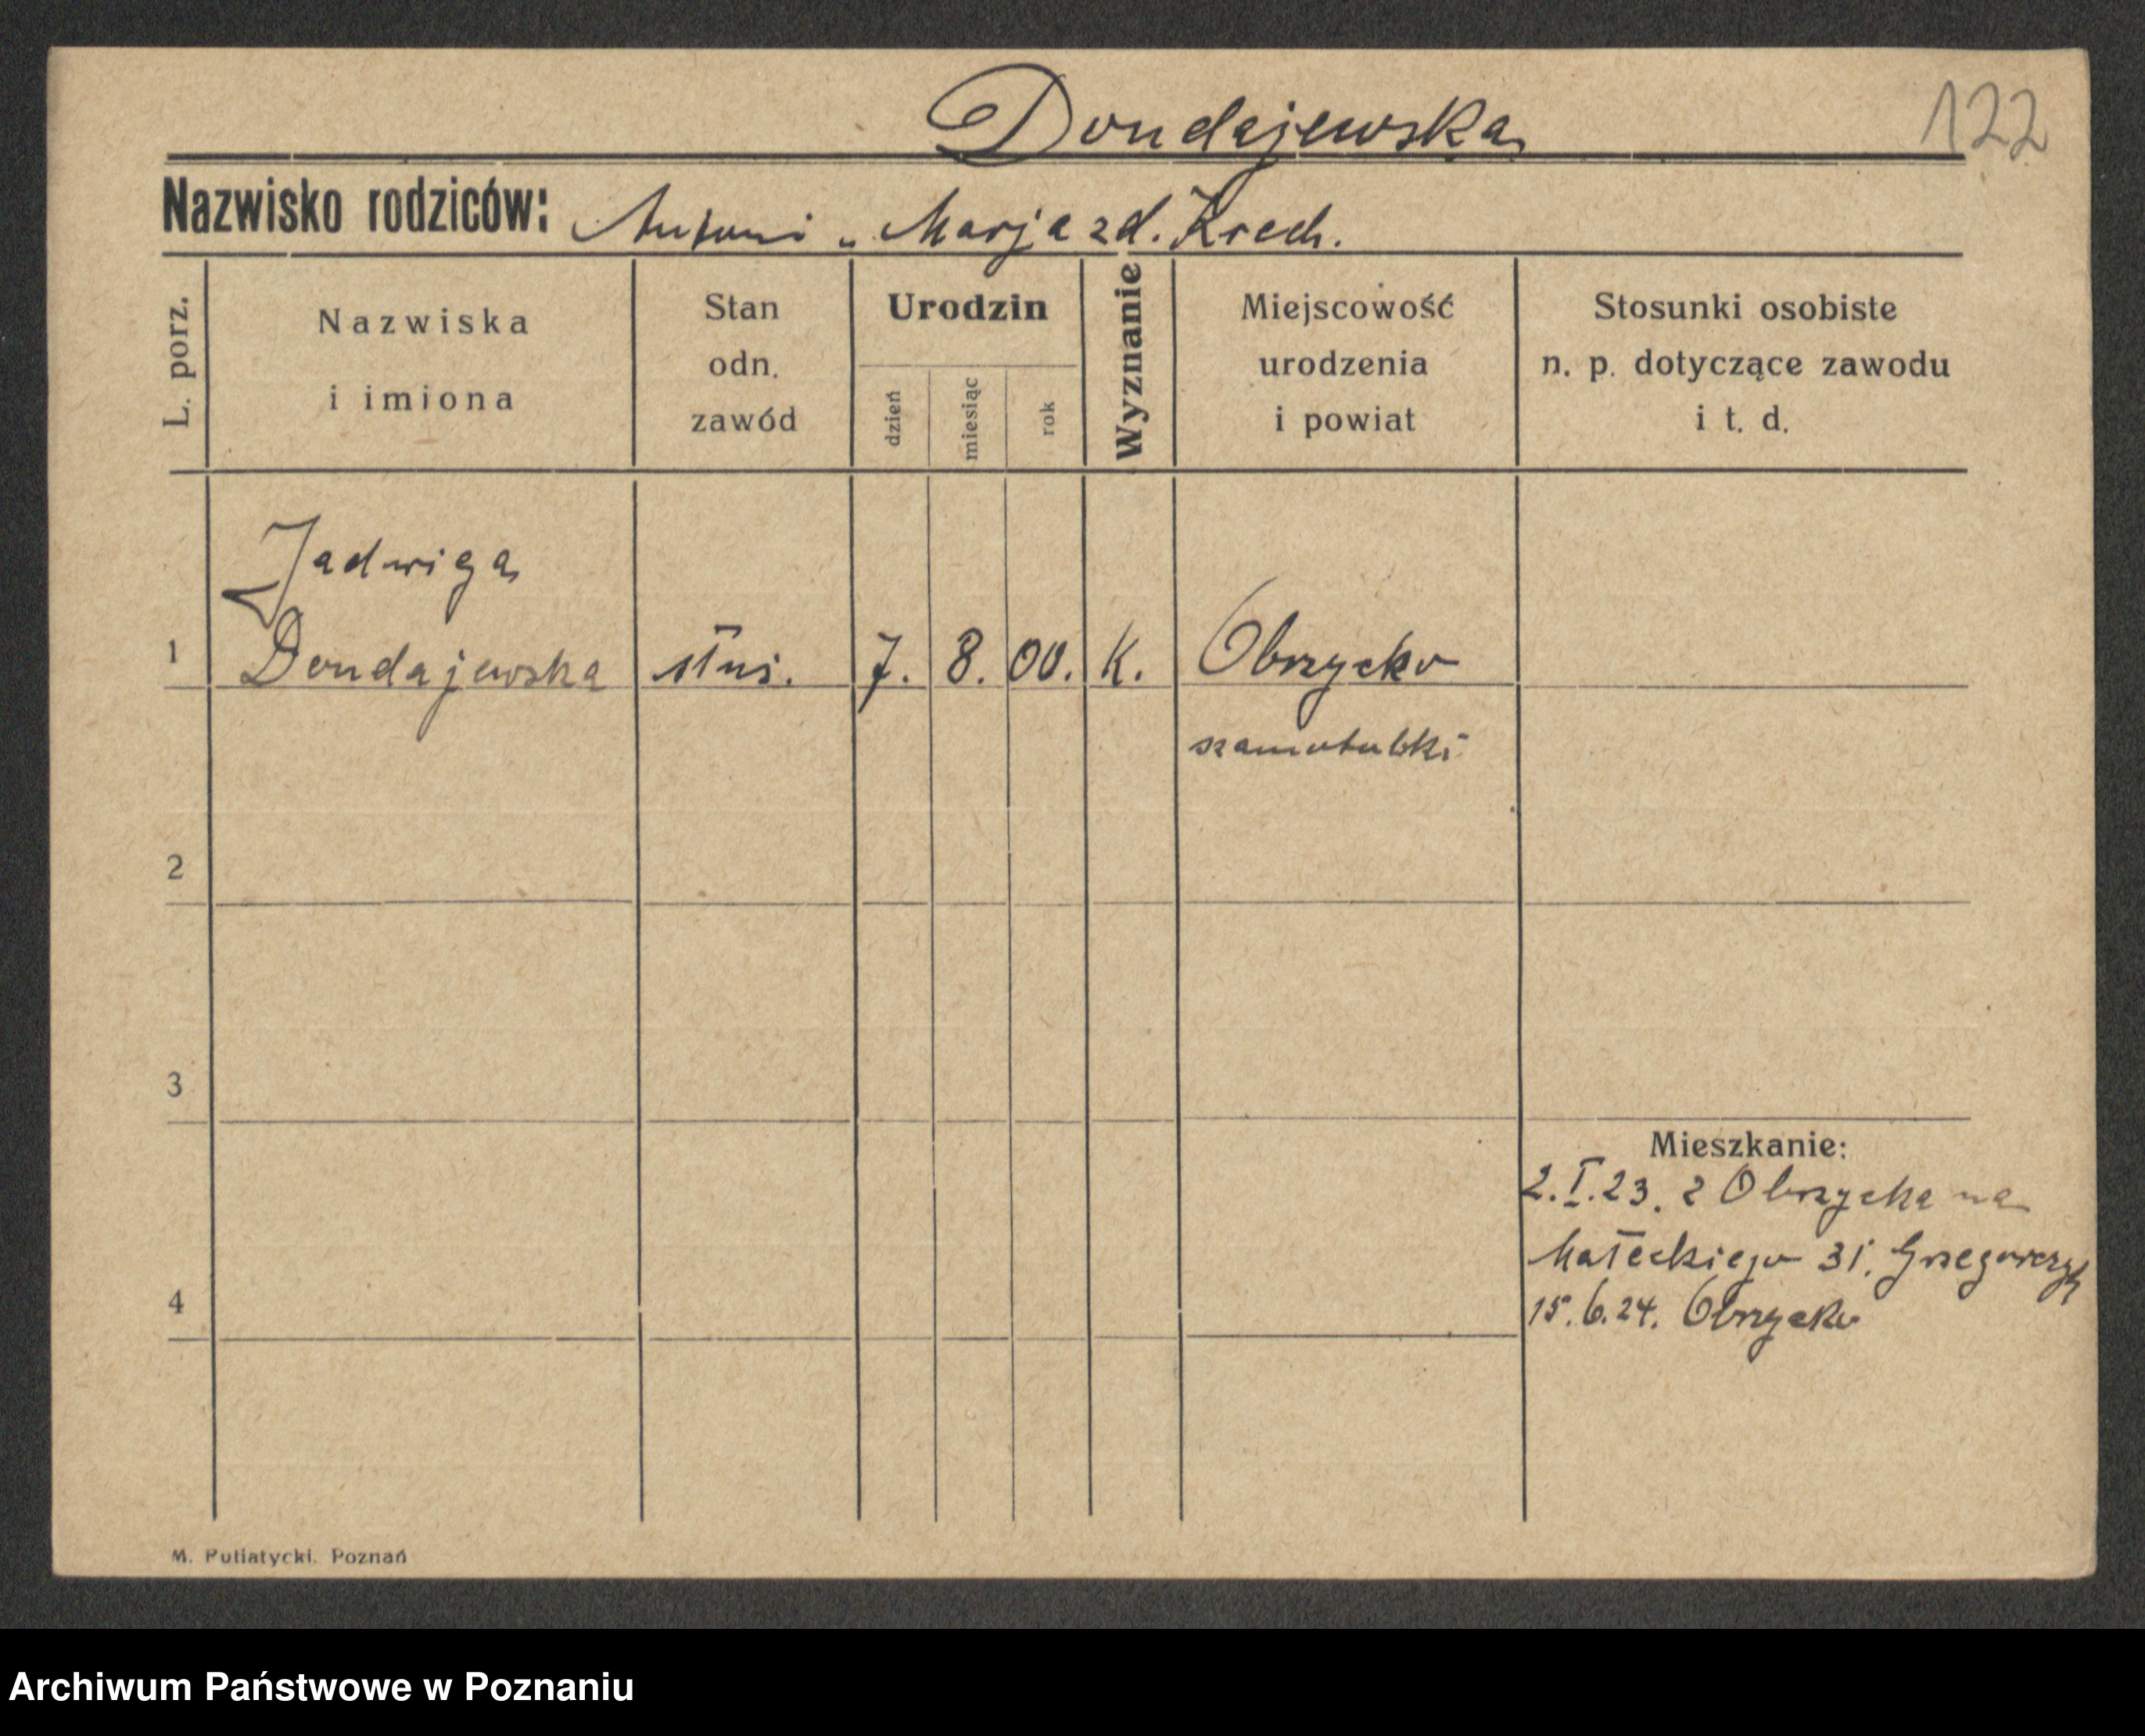 Dondajewska
122
Nazwisko rodziców: Antoni u. Marja zd. Krech.
L. porz.
Nazwiska
i imiona
Stan
odn.
zawód
Urodzin
dzień
miesiąc
rok
Wyznanie
Miejscowość
urodzenia
i powiat
Stosunki osobiste
n. p. dotyczące zawodu
i t. d.
Jadwiga
1 Dondajewska służ. 7. 8. 00. K. Obrzycko
szamotulski
2
3
Mieszkanie:
2.I.23. z Obrzycka na
Małeckiego 31. Grzegorczyk
4 15.6.24. Obrzycko
M. Putiatycki. Poznań
Archiwum Państwowe w Poznaniu